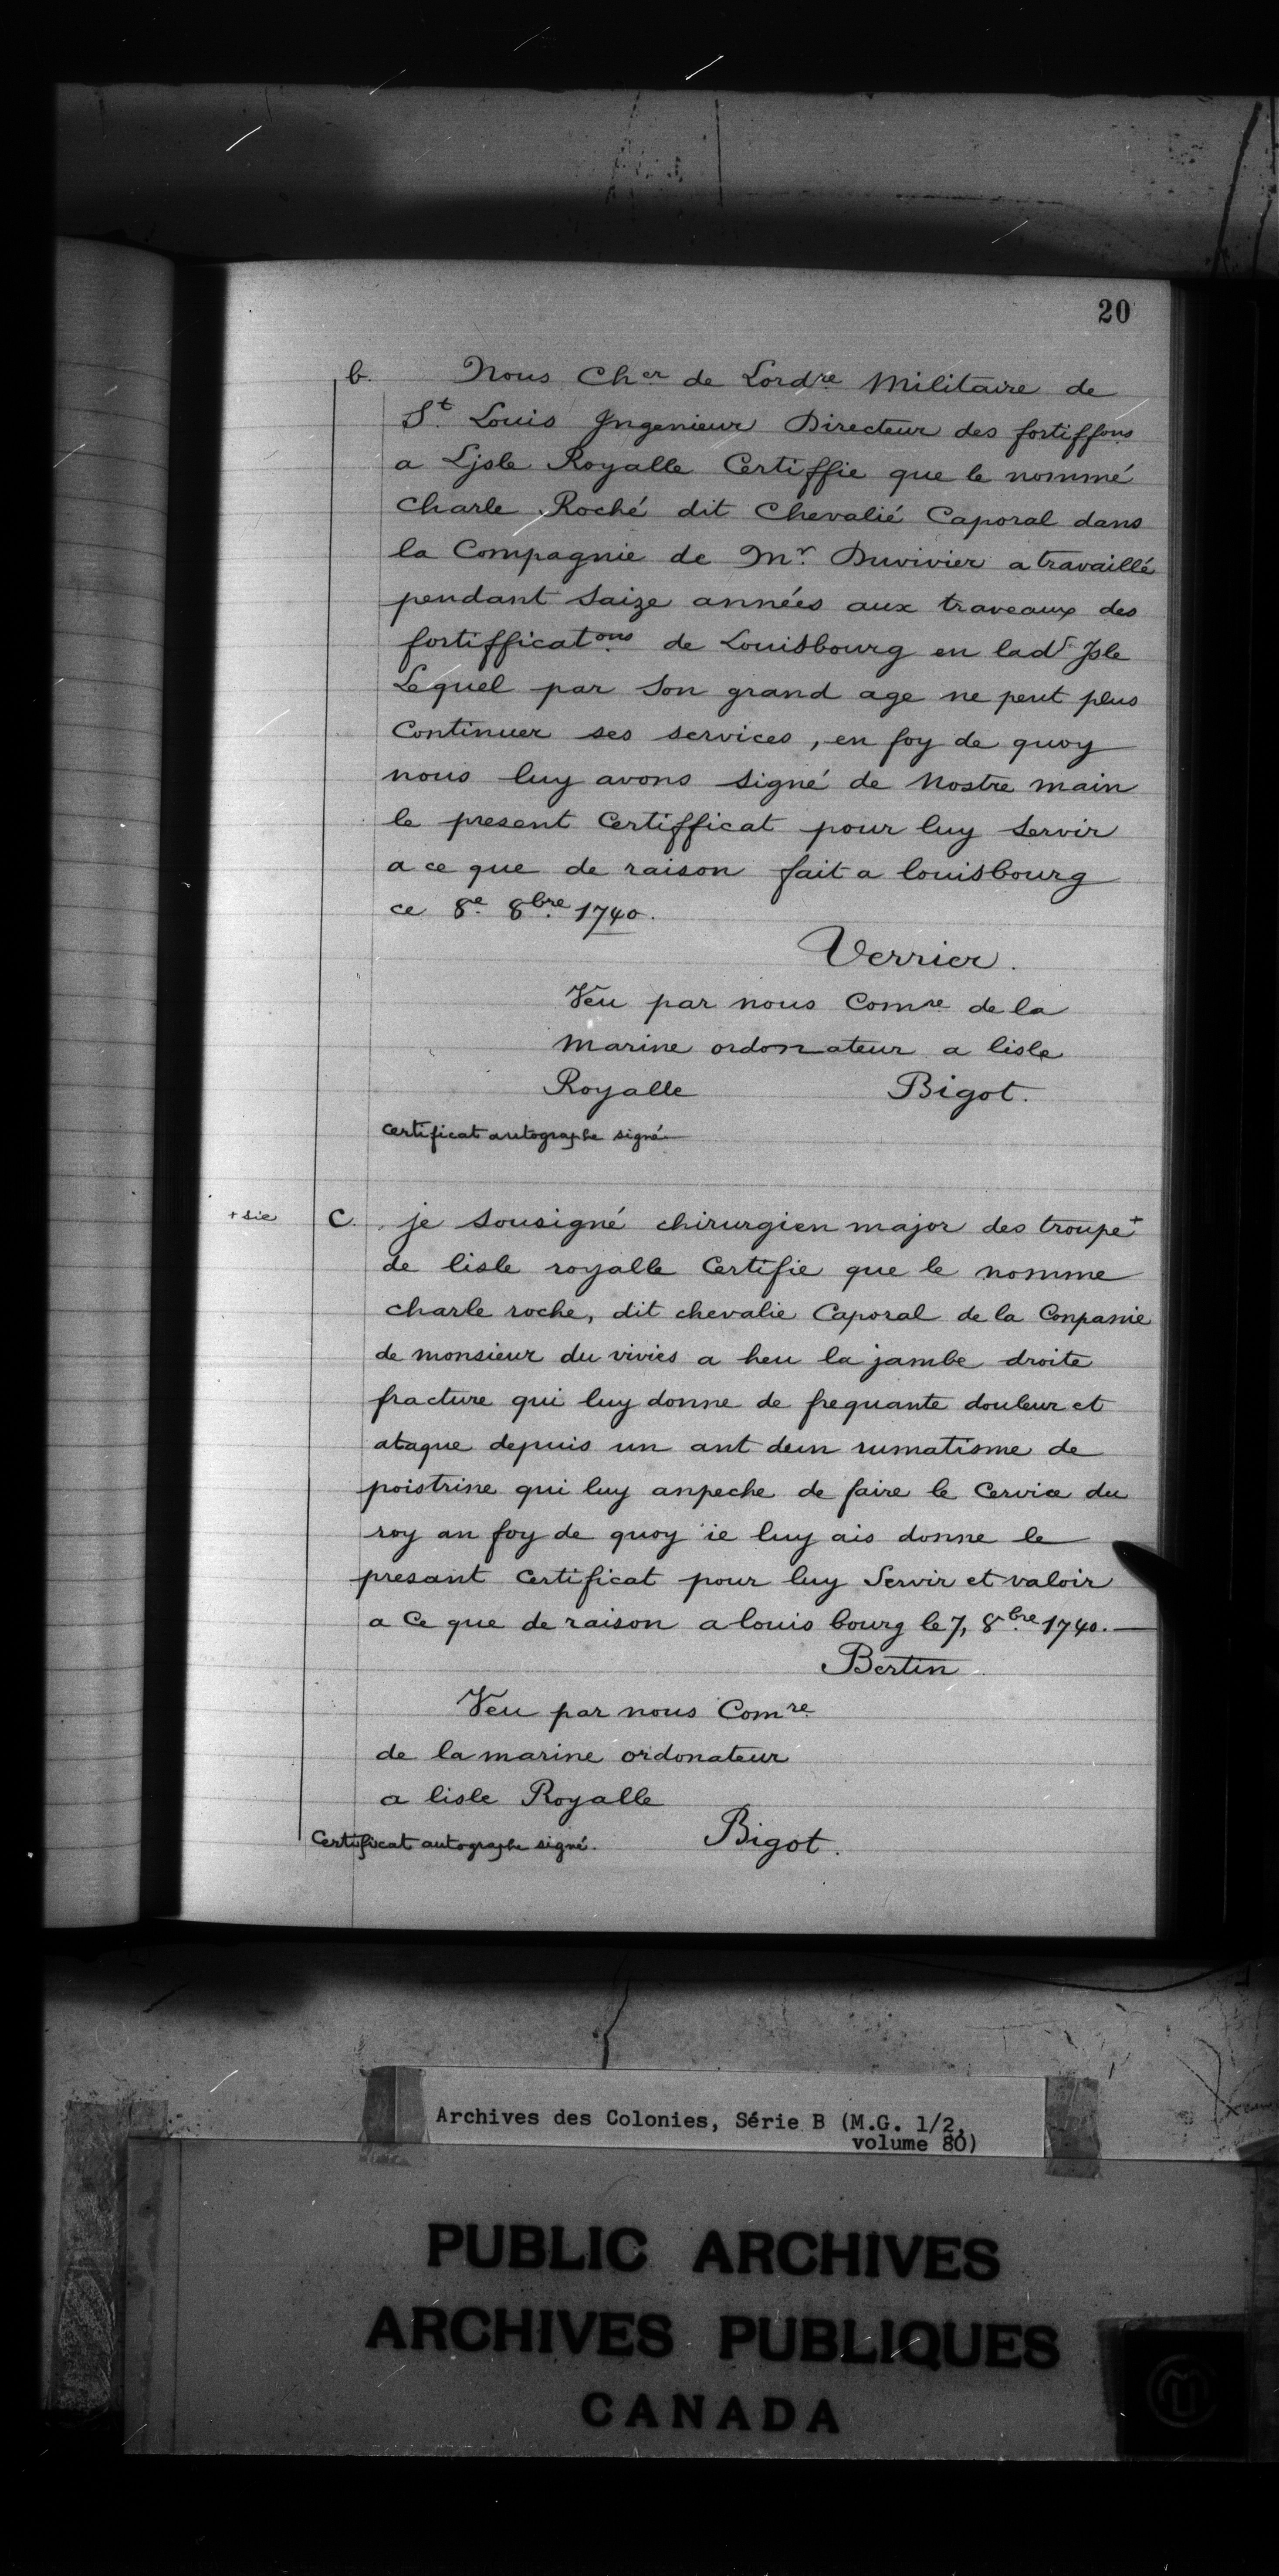 20
b. Nous Cher de Lordre Militaire de
St. Louis Ingenieur Directeur des fortiffons
a Ljsle Royalle Certiffie que le nommé
charle Roché dit Chevalié Caporal dans
la Compagnie de Mr. Duvivier a travaillé
pendant Saize années aux traveaux des
fortifficatons. de Louisbourg en lad. Isle
Lequel par Son grand age ne peut plus
Continuer ses services, en foy de quoy
nous luy avons signé de Nostre main
le present Certifficat pour luy Servir
a ce que de raison fait a louisbourg
ce 8e. 8bre. 1740.
Verrier.
Veu par nous Comre de la
Marine ordonateur a lisle
Royalle Bigot.
Certificat autographe signé
+ sic C. je Sousigné chirurgien major des troupe+
de lisle royalle Certifie que le nomme
charle roche, dit chevalie Caporal de la Conpanie
de monsieur du vivies a heu la jambe droite
fracture qui luy donne de frequante douleur et
ataque depuis un ant deun rumatisme de
poistrine qui luy anpeche de faire le Cervice du
roy an foy de quoy ie luy ais donne le
presant Certificat pour luy Servir et valoir
a Ce que de raison a louis bourg le 7, 8bre. 1740.
Bertin
Veu par nous Comre
de la marine ordonateur
a lisle Royalle
Certificat autographe signé. Bigot.
Archives des Colonies, Série B (M.G. 1/2,
volume 80)
PUBLIC ARCHIVES
ARCHIVES PUBLIQUES
CANADA